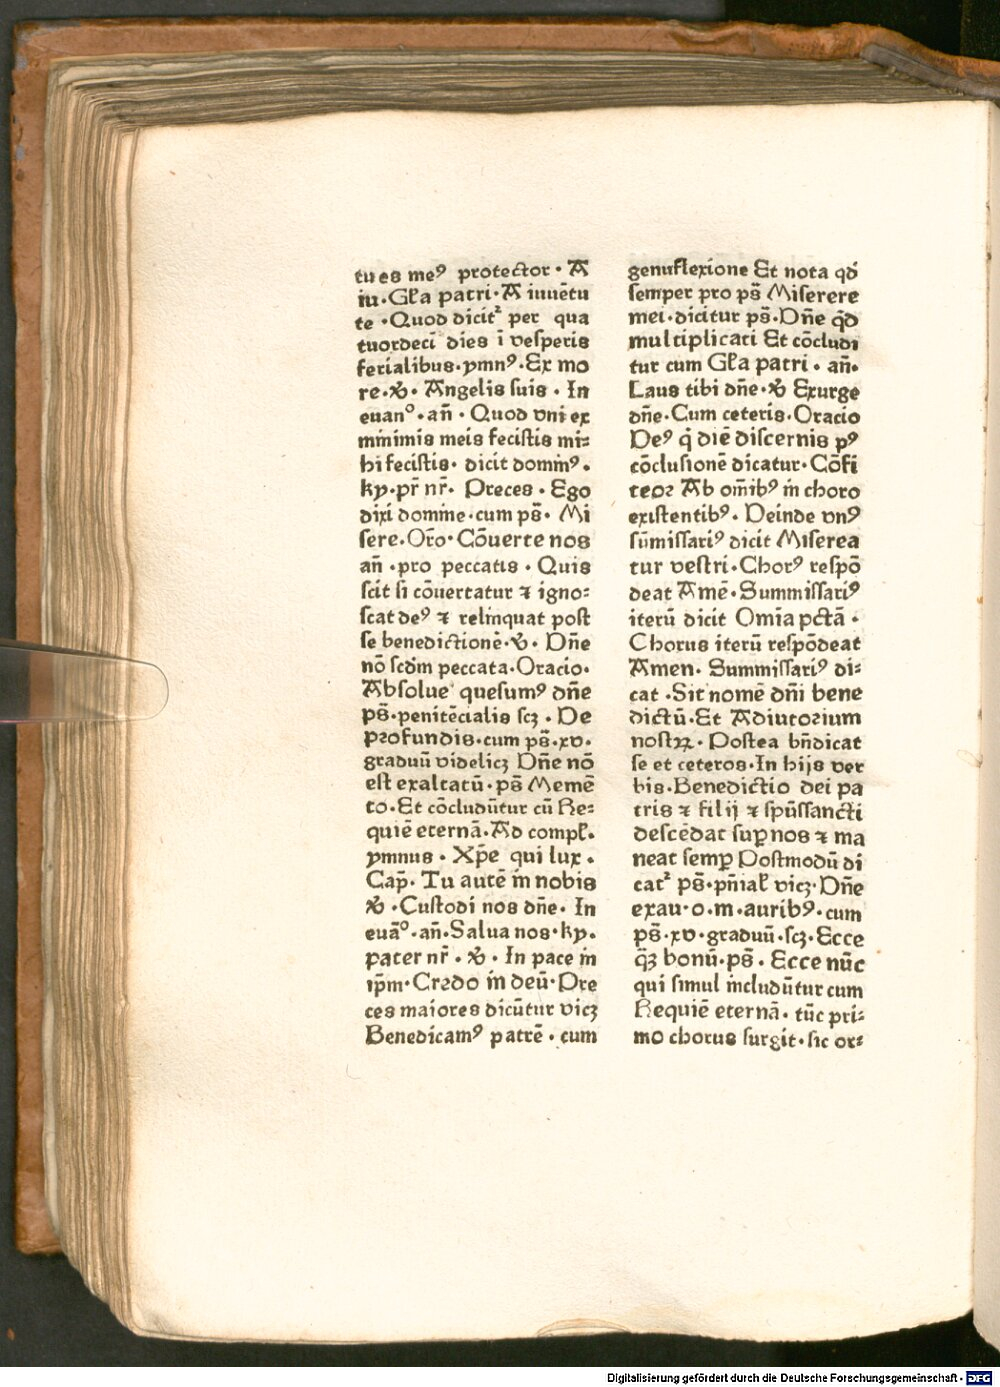 tu es meꝰ protector · A
iu · Gl̃a patri · A iuuētu
te · Quod dicit᷑ per qua
tuordeci dies ī vesperis
ferialibus · ymnꝰ · Ex mo
re · ꝟ · Angelis suis · In
euanº · añ · Quod vni ex
minimis meis fecistis mi⸗
hi fecistis · dicit dominꝰ ·
ky · pr̃ nr̃ · Preces · Ego
dixi domine · cum ps̃ · Mi
sere · Oro · Cōuerte nos
añ · pro peccatis · Quis
scit si cōuertatur ⁊ igno⸗
scat deꝰ ⁊ relinquat post
se benedictionē · ꝟ · Dñe
nō scdm peccata · Oracio ·
Absolue quesumꝰ dñe
ps̃ · penitēcialis scꝫ · De
profundis · cum ps̃ · xv ·
graduū videlicꝫ Dñe nō
est exaltatū · ps̃ Memē
to · Et cōcludūtur cū Re⸗
quiē eternā · Ad compl̃ ·
ymnus · Xp̄e qui lux ·
Cap̃ · Tu autē in nobis
ꝟ · Custodi nos dñe · In
euāº · añ · Salua nos · ky ·
pater nr̃ · ꝟ · In pace in
ip̄m · Credo in deū · Pre
ces maiores dicūtur vicꝫ
Benedicamꝰ patrē · cum
genuflexione Et nota qd̃
semper pro ps̃ Miserere
mei · dicitur ps̃ · Dñe qd̃
multiplicati Et cōcludi
tur cum Gl̃a patri · añ ·
Laus tibi dñe · ꝟ Exurge
dñe · Cum ceteris · Oracio
Deꝰ q̄ diē discernis pꝰ
cōclusionē dicatur · Cōfi
teor Ab om̄ibꝰ in choro
existentibꝰ · Deinde vnꝰ
sūmissariꝰ dicit Miserea
tur vestri · Chorꝰ respō
deat Amē · Summissariꝰ
iterū dicit Omīa pctā ·
Chorus iterū respōdeat
Amen · Summissariꝰ di⸗
cat · Sit nomē dn̄i bene
dictū · Et Adiutorium
nostꝝ · Postea bn̄dicat
se et ceteros · In hijs ver
bis · Benedictio dei pa
tris ⁊ filij ⁊ sp̄ussancti
descēdat suꝑ nos ⁊ ma
neat semꝑ Postmodū di
cat᷑ ps̃ · pn̄ial̃ vicꝫ · Dñe
exau · o · m · auribꝰ · cum
ps̃ · xv · graduū · scꝫ · Ecce
qꝫ bonū · ps̃ · Ecce nūc
qui simul includūtur cum
Requiē eternā · tūc pri⸗
mo chorus surgit · sic or⸗
Digitalisierung gefördert durch die Deutsche Forschungsgemeinschaft · DFG